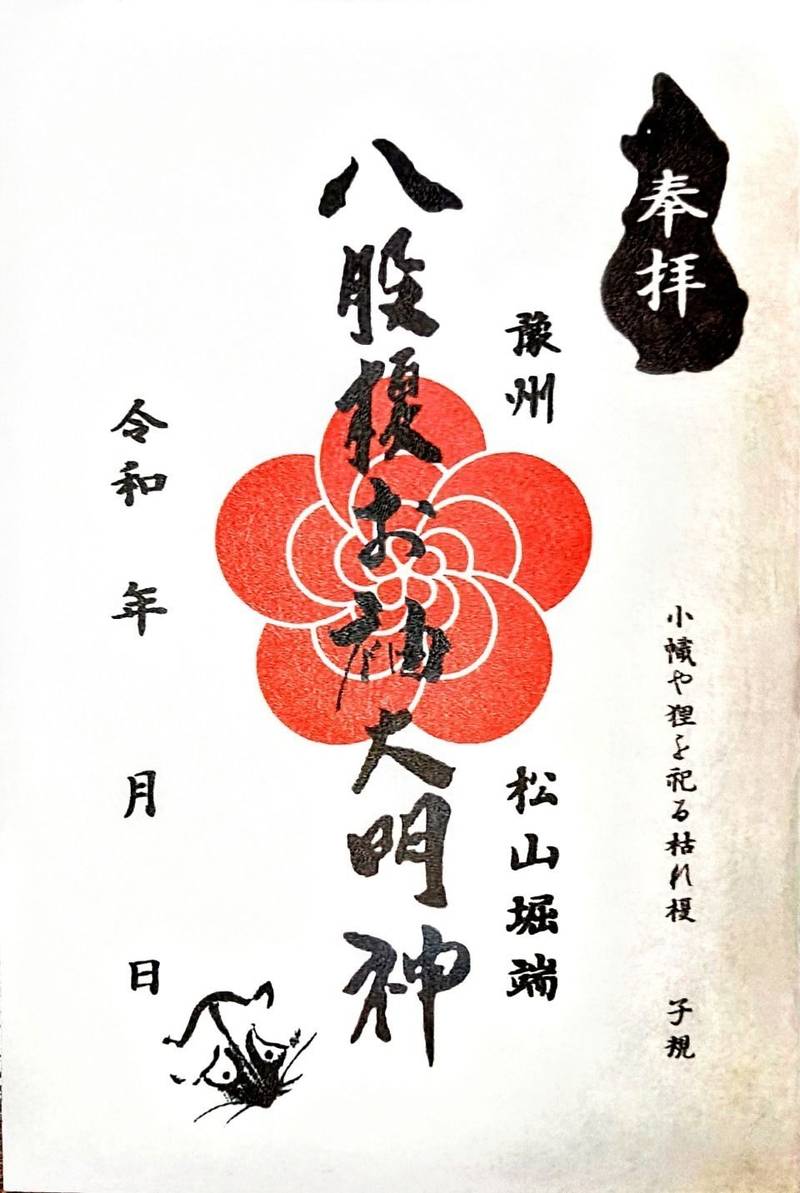 奉拝
小幟や狸を祀る枯れ榎 子規
豫州 松山堀端
八股榎お袖大明神
令和 年 月 日